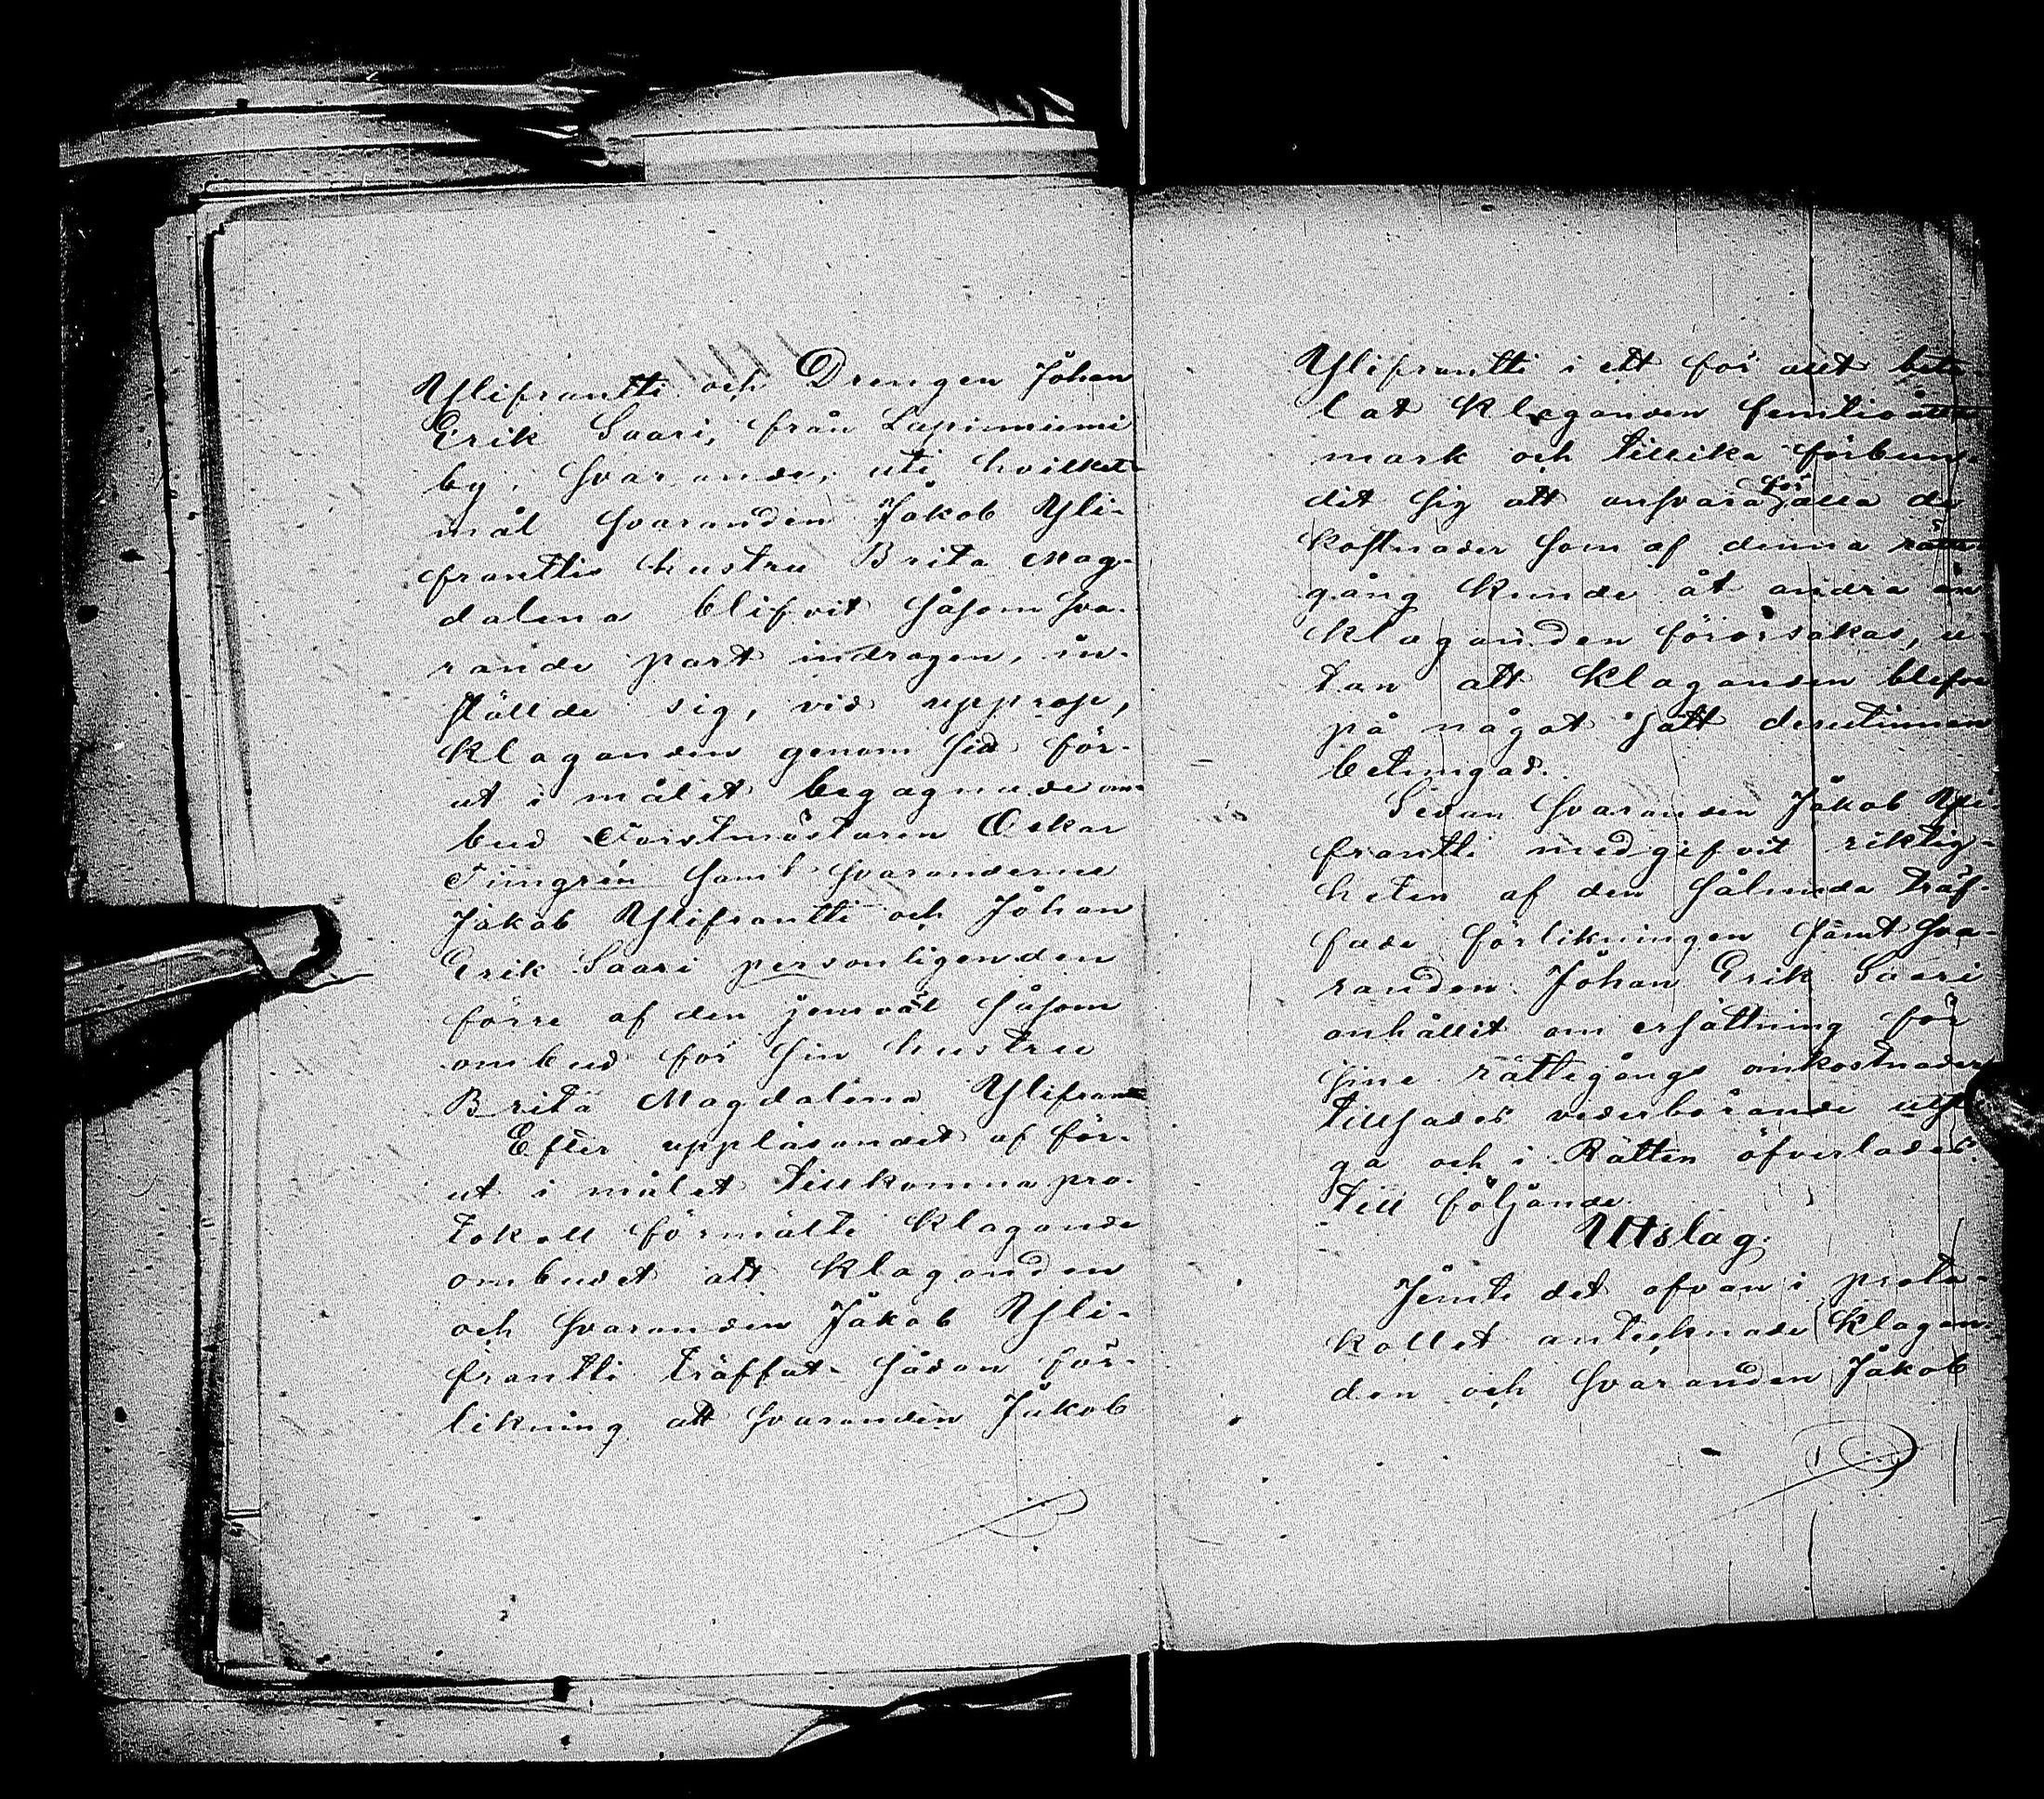 Ylifrantti och Drengen Johan
Erik Saari, från Lapinniemi
by, svarande, uti hvilket
mål svaranden Jakob Yli-
franttis hustru Brita Mag-
dalena blifvit såsom sva-
rande part indragen, in-
ställde sig, vid upprop,
klaganden genom sid för-
ut i målet begagnade om-
bud Forstmästaren Oskar
Timgrén samt svaranderne
Jakob Ylifrantti och Johan
Erik Saari personligen den
förre af dem jemväl såsom
ombud för sin hustru
Brita Magdalena Ylifran
Efter uppläsandet af för-
ut i målet tillkomna pro-
tokoll förmälte klagande
ombudet att klaganden
och svaranden Jakob Yli-
frantti träffat sådan för-
likning att svaranden Jakob
Ylifrantti i ett för allt beta-
lat klaganden femtioåtta
mark och tillika förbun-
dit sig att ansvara för alla de
kostnader som af denna rätte-
gång kunde åt andra än
klaganden förorsakas, u-
tan att klaganden blefve
på något sätt derutinnan
betungad.
Sedan svaranden Jakob Yli
frantti medgifvit riktig-
heten af den sålunda träf-
fade förlikningen samt sva-
randen Johan Erik Saari
anhållit om ersättning för
sine rättegångs omkostnader
tillsades vederbörande utst
ga och i Rätten öfverlades
till följande
Utslag.
Jemte det ofvan i proto-
kollet antecknade klagan-
den och svaranden Jakob